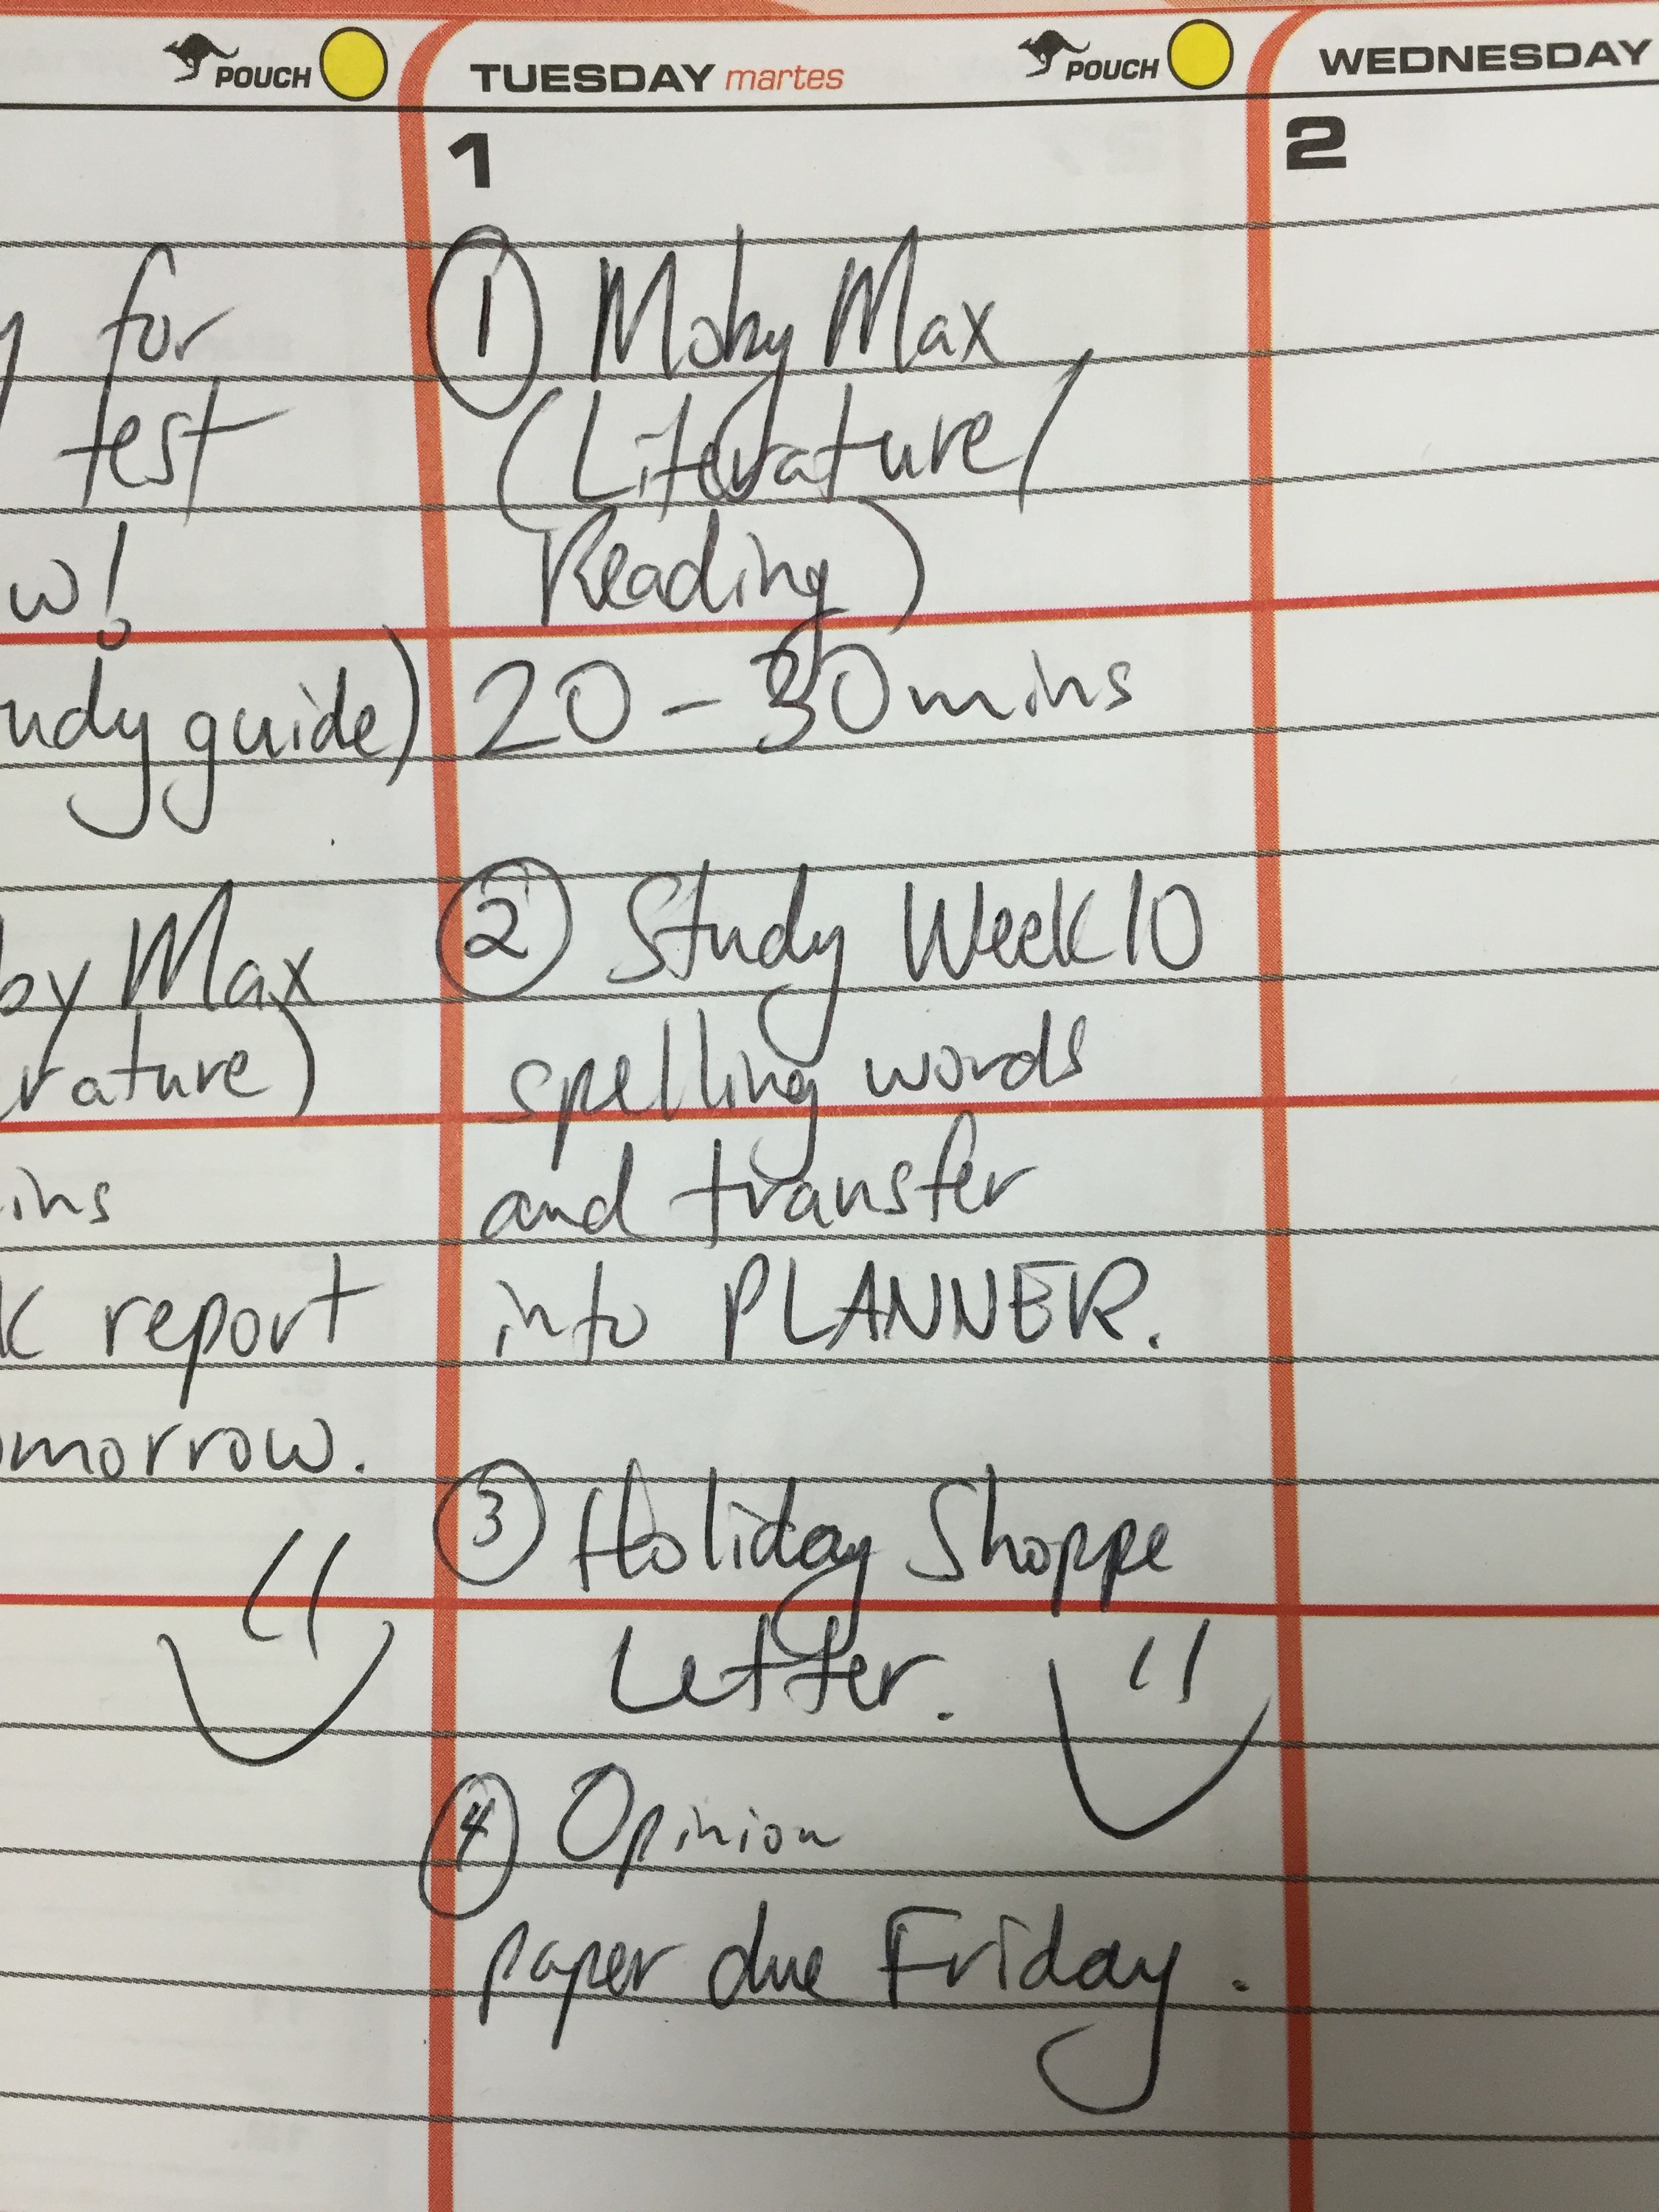 POUCH
for
test
w!
udy guide)
by Max
rature)
ins
k report
omorrow.
TUESDAY martes POUCH
1
① Moby Max
(Literature/
Reading)
20-30mins
② Study Week 10
spelling words
and transfer
into PLANNER.
③ Holiday Shoppe
Letter.
④ Opinion
paper due Friday.
WEDNESDAY
2